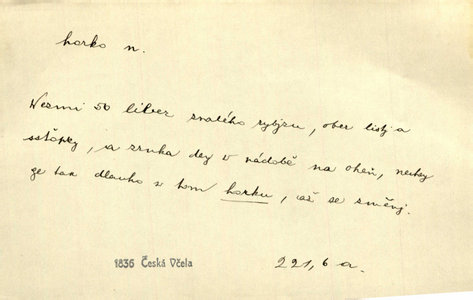 horko n.
Wezmi 50 liber zralého rybjzu, ober listj a
sstopky, a zrnka dey w nádobě na oheň, nechey
ge tak dlauho w tom horku, až se změnj.
1836 Česká Včela
221, 6 a.